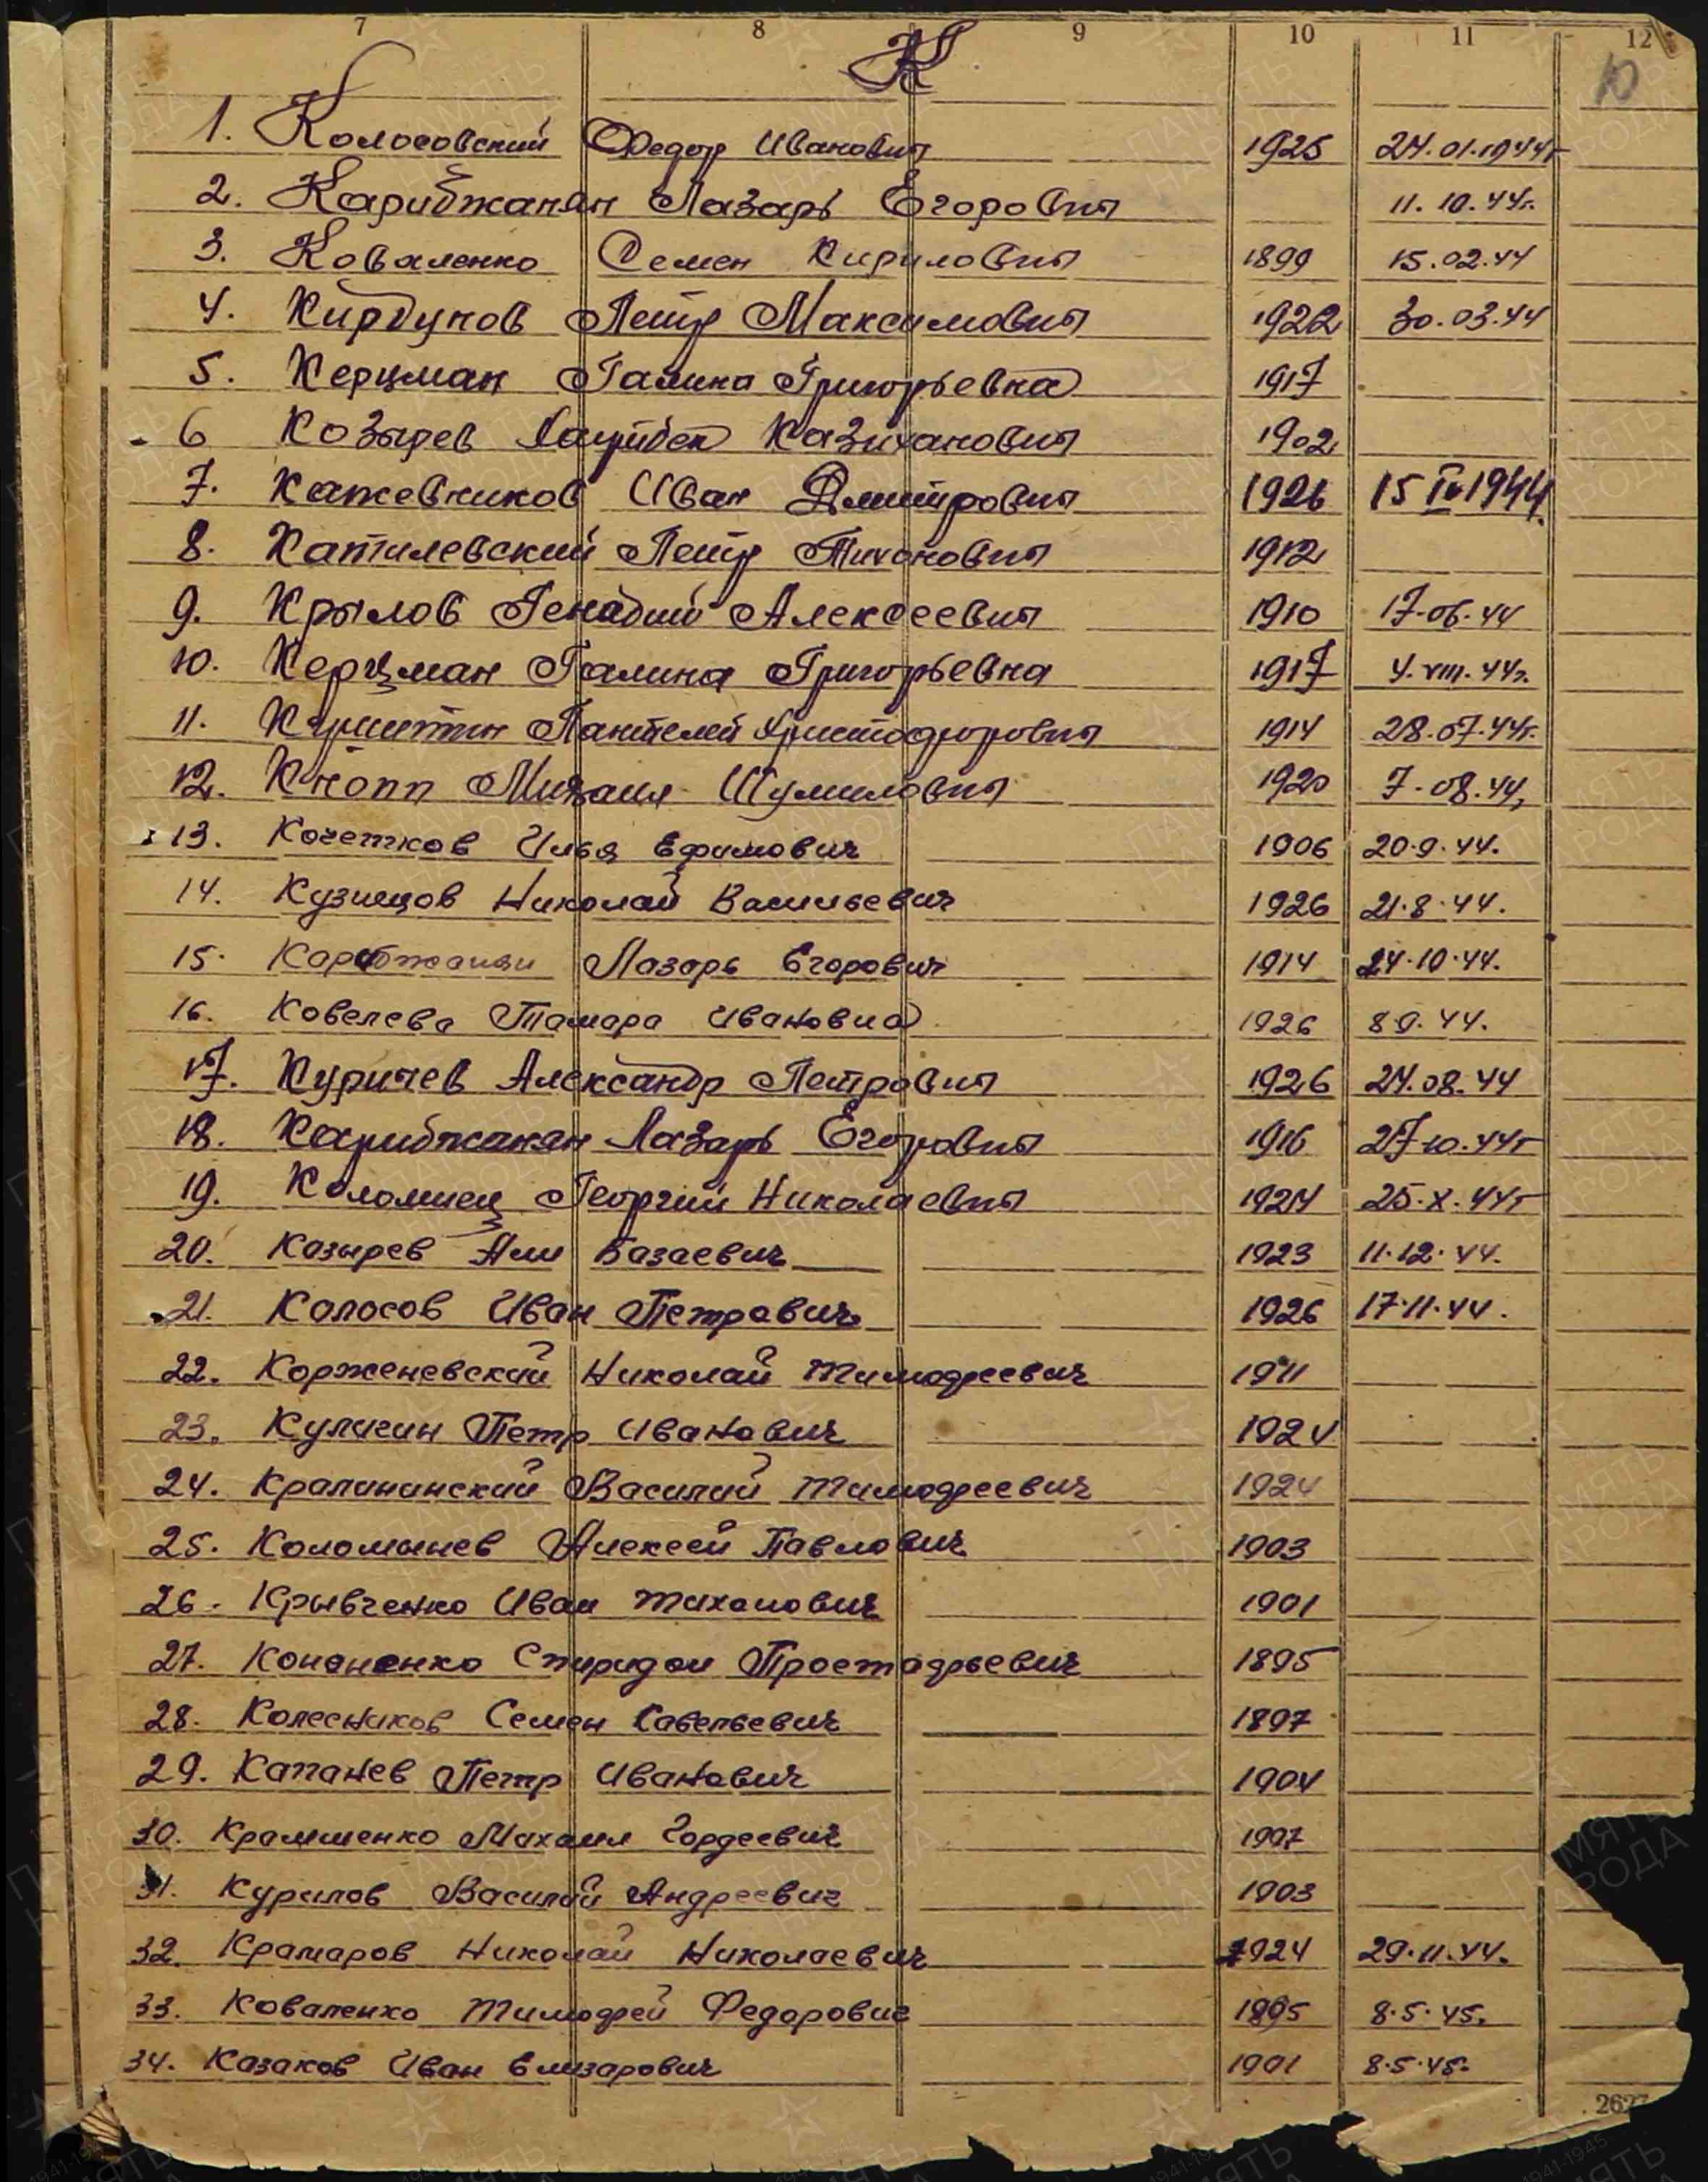 7 8 9 10 11 12
К
1. Колосовский Федор Иванович 1925 24.01.1944г
2. Карибжанян Лазарь Егорович 11.10.44г.
3. Коваленко Семен Кирилович 1899 15.02.44
4. Кирдунов Петр Максимович 1922 30.03.44
5. Керцман Галина Григорьевна 1917
6 Козырев Казиханович 1902
7. Кажевников Иван Дмитрович 1926 15 1944
8. Катилевский Петр Тихонович 1912
9. Крылов Генадий Алексеевич 1910 17.06.44
10. Керцман Галина Григорьевна 1917 4.VIII.44г.
11. Пантелей Христофорович 1914 28.07.44г.
12. Кнопп Михаил Шулимович 1920 7.08.44
13. Кочетков Илья Ефимович 1906 20.9.44.
14. Кузнецов Николай Васильевич 1926 21.8.44.
15. Карибжанян Лазарь Егорович 1914 24.10.44.
16. Ковелева Тамара Ивановна 1926 8.9.44.
17. Куричев Александр Петрович 1926 24.08.44
18. Карибжанян Лазарь Егорович 1916 27.10.44г
19. Коломиец Георгий Николаевич 1924 25.X.44г
20. Казырев Али Базаевич 1923 11.12.44.
21. Колосов Иван Петрович 1926 17.11.44.
22. Корженевский Николай Тимофеевич 1911
23. Кулигин Петр Иванович 1924
24. Крапининский Василий Тимофеевич 1924
25. Коломынев Алексей Павлович 1903
26. Крывченко Иван Тихонович 1901
27. Кононенко Спиридон 1895
28. Колесников Семен Савельевич 1897
29. Капанев Петр Иванович 1904
30. Крамшенко Михаил Гордеевич 1907
31. Курилов Василий Андреевич 1903
32. Крамаров Николай Николаевич 1924 29.11.44.
33. Коваленко Тимофей Федорович 1895 8.5.45.
34. Казаков Иван Елизарович 1901 8.5.45.